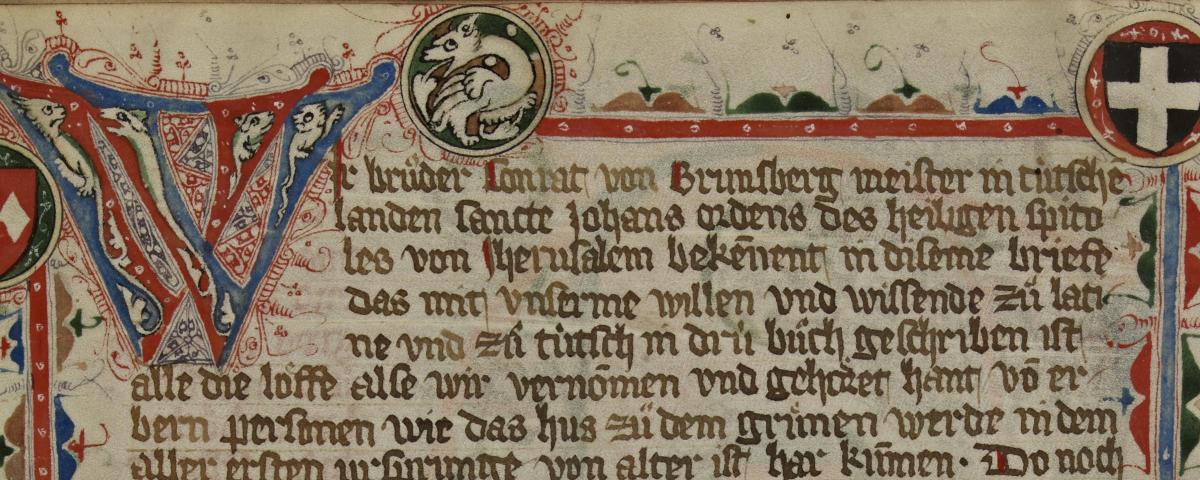 Wir brůder Conrat von Brunsberg meister in tútschē
landen sancte Johans ordens des heiligen spito
les von Jherusalem bekēnent in diseme briefe
das mit vnserme willen vnd wissende zů lati
ne vnd zů tútsch in drú bůch geschriben ist
alle die lôffe alse wir vernōmen vnd gehôret hant vō er
bern personen wie das hus zů dem grůnen werde in dem
aller ersten vrsprunge von alter ist har kūmen. Do noch